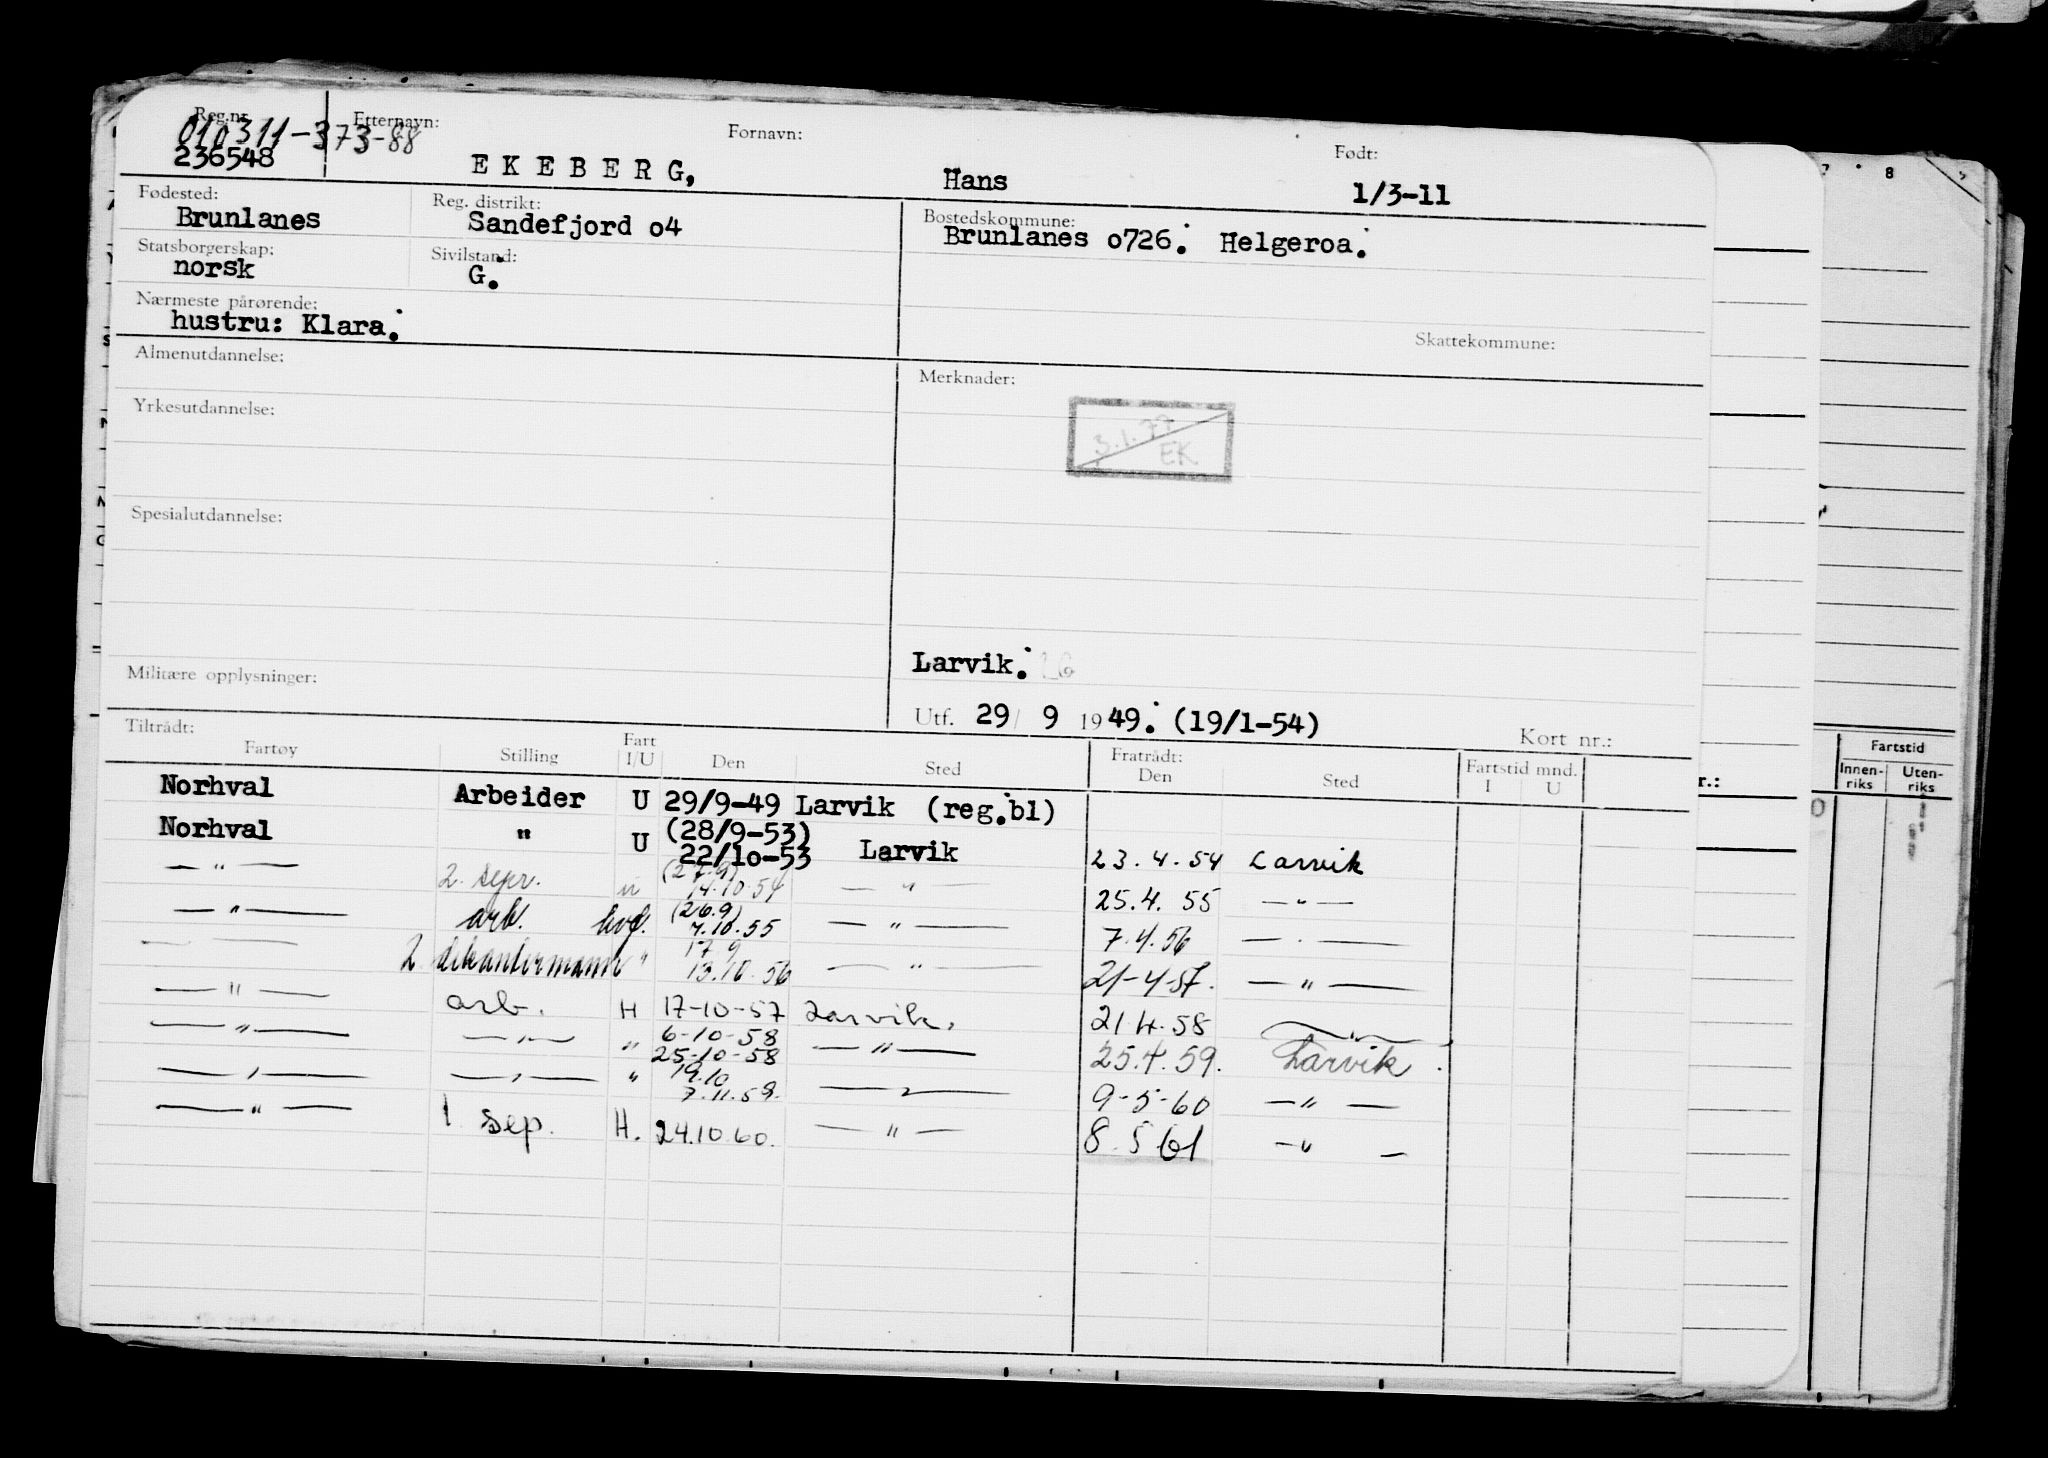 Reg.nr. Etternavn: Fornavn: Født:
010311-373-88
236548 EKEBERG, Hans 1/3-11
Fødested: Reg. distrikt: Bostedskommune:
Brunlanes Sandefjord o4 Brunlanes o726. Helgeroa.
Statsborgerskap: Sivilstand:
norsk G.
Nærmeste pårørende:
hustru: Klara. Skattekommune:
Almenutdannelse: Merknader:
Yrkesutdannelse: 3.1.77 EK
Spesialutdannelse:
Larvik.
Militære opplysninger:
Utf. 29/ 9 1949. (19/1-54) Kort nr.:
Tiltrådt: Fratrådt:
Fartøy Stilling Fart I/U Den Sted Den Sted Fartstid mnd. I U
Norhval Arbeider U 29/9-49 Larvik (reg.bl)
Norhval " U (28/9-53) 22/10-53 Larvik 23.4.54 Larvik
— " — 2. sepr. u (27.9) 14.10.54 — " — 25.4.55 — " —
— " — arb. hvf. (26.9) 7.10.55 — " — 7.4.56 — " —
— " — 2. dekantermann " 17.9 13.10.56 — " — 21-4-57. — " —
— " — arb. H 17-10-57 Larvik. 21.4.58 — " —
— " — — " — " 6-10-58 25-10-58 — " — 25.4.59. Larvik.
— " — — " — " 19.10 7.11.59. — " — 9-5-60 — " —
— " — 1 sep. H. 24.10.60. — " — 8.5.61 — " —
7 8
Fartstid
Innen-riks Uten-riks
r.: